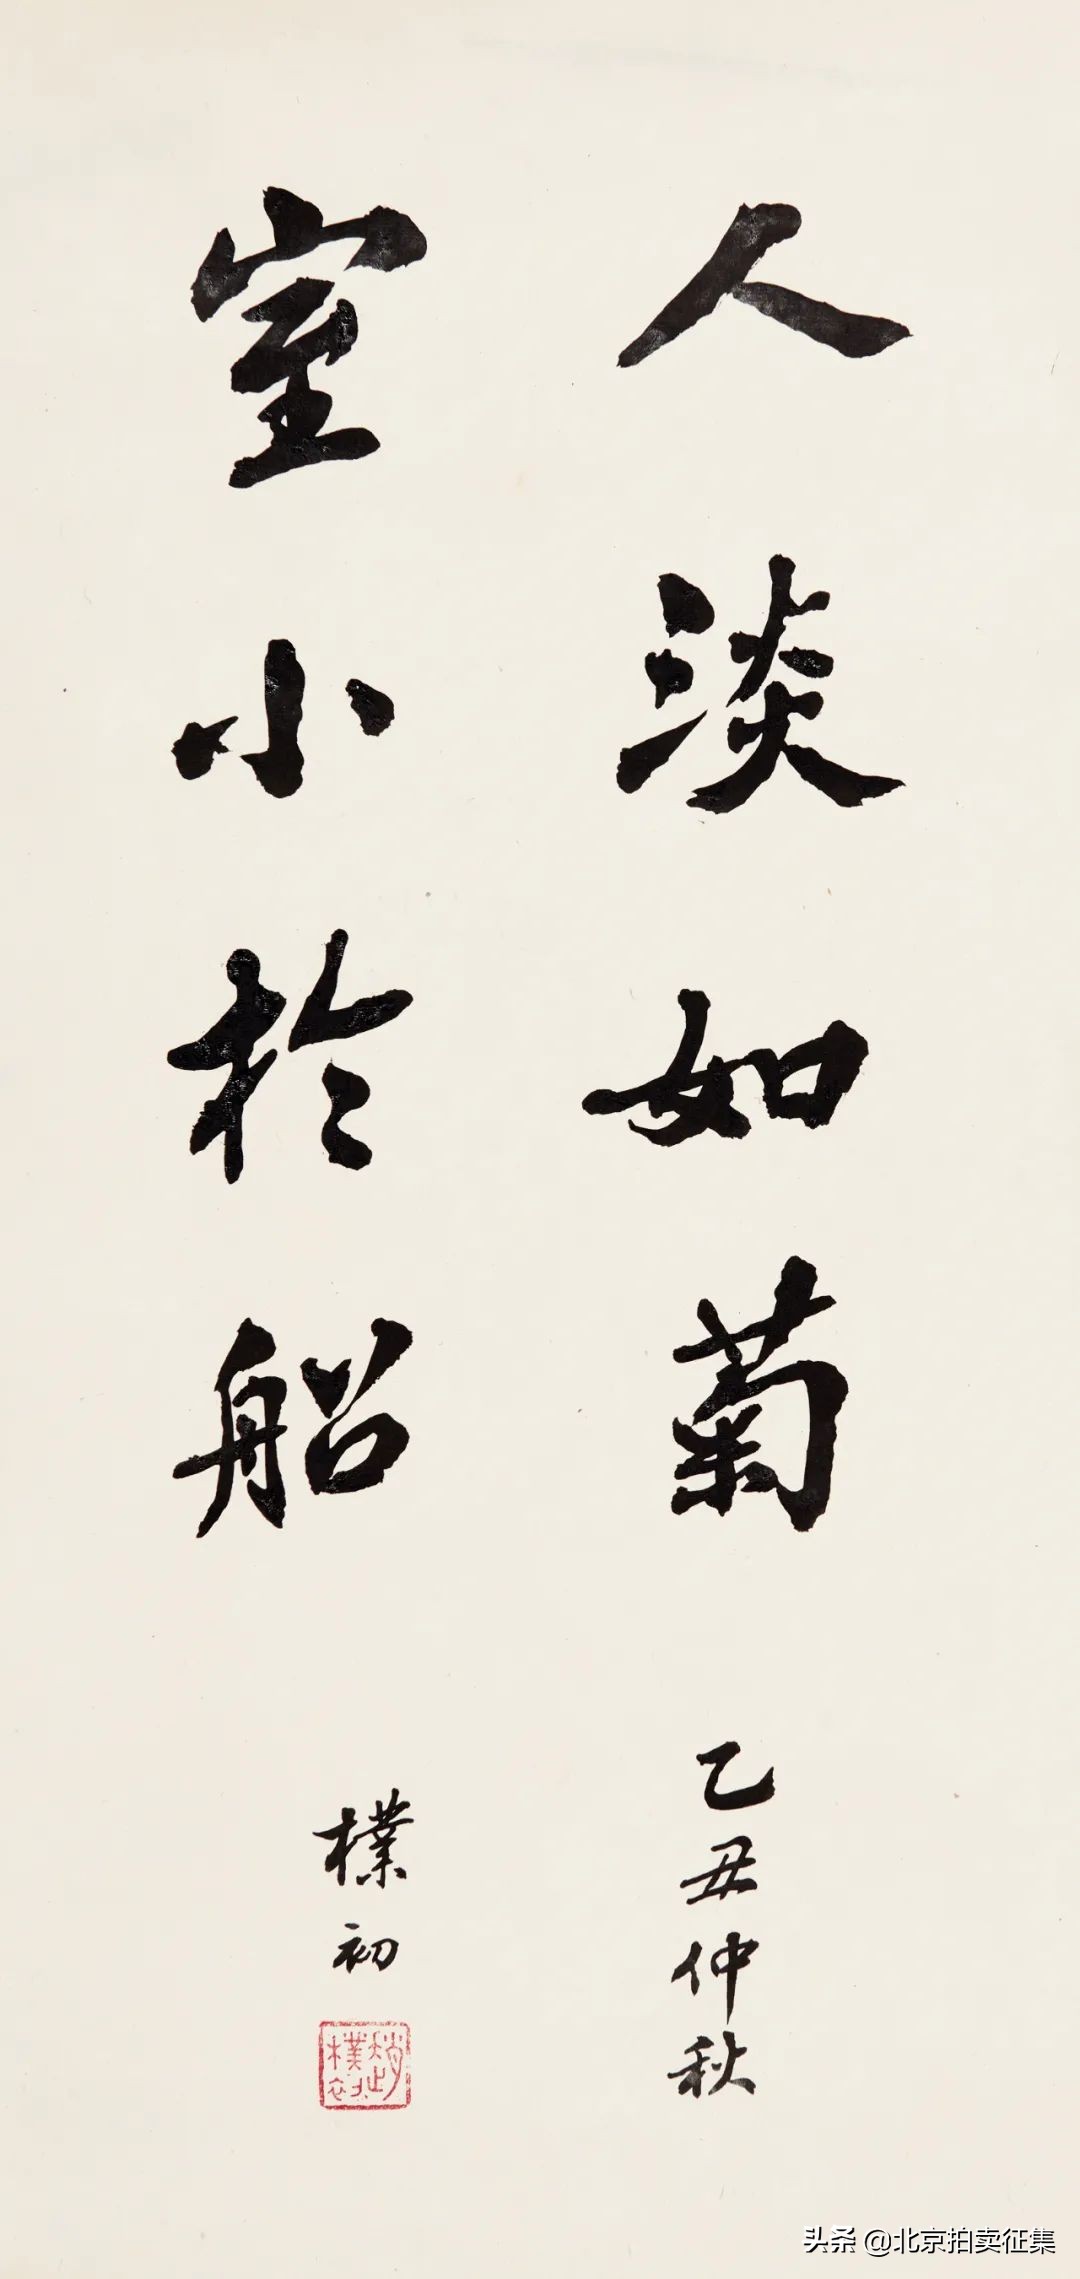 人淡如菊
乙丑仲秋
室小於船
樸初
趙樸初
头条 @北京拍卖征集